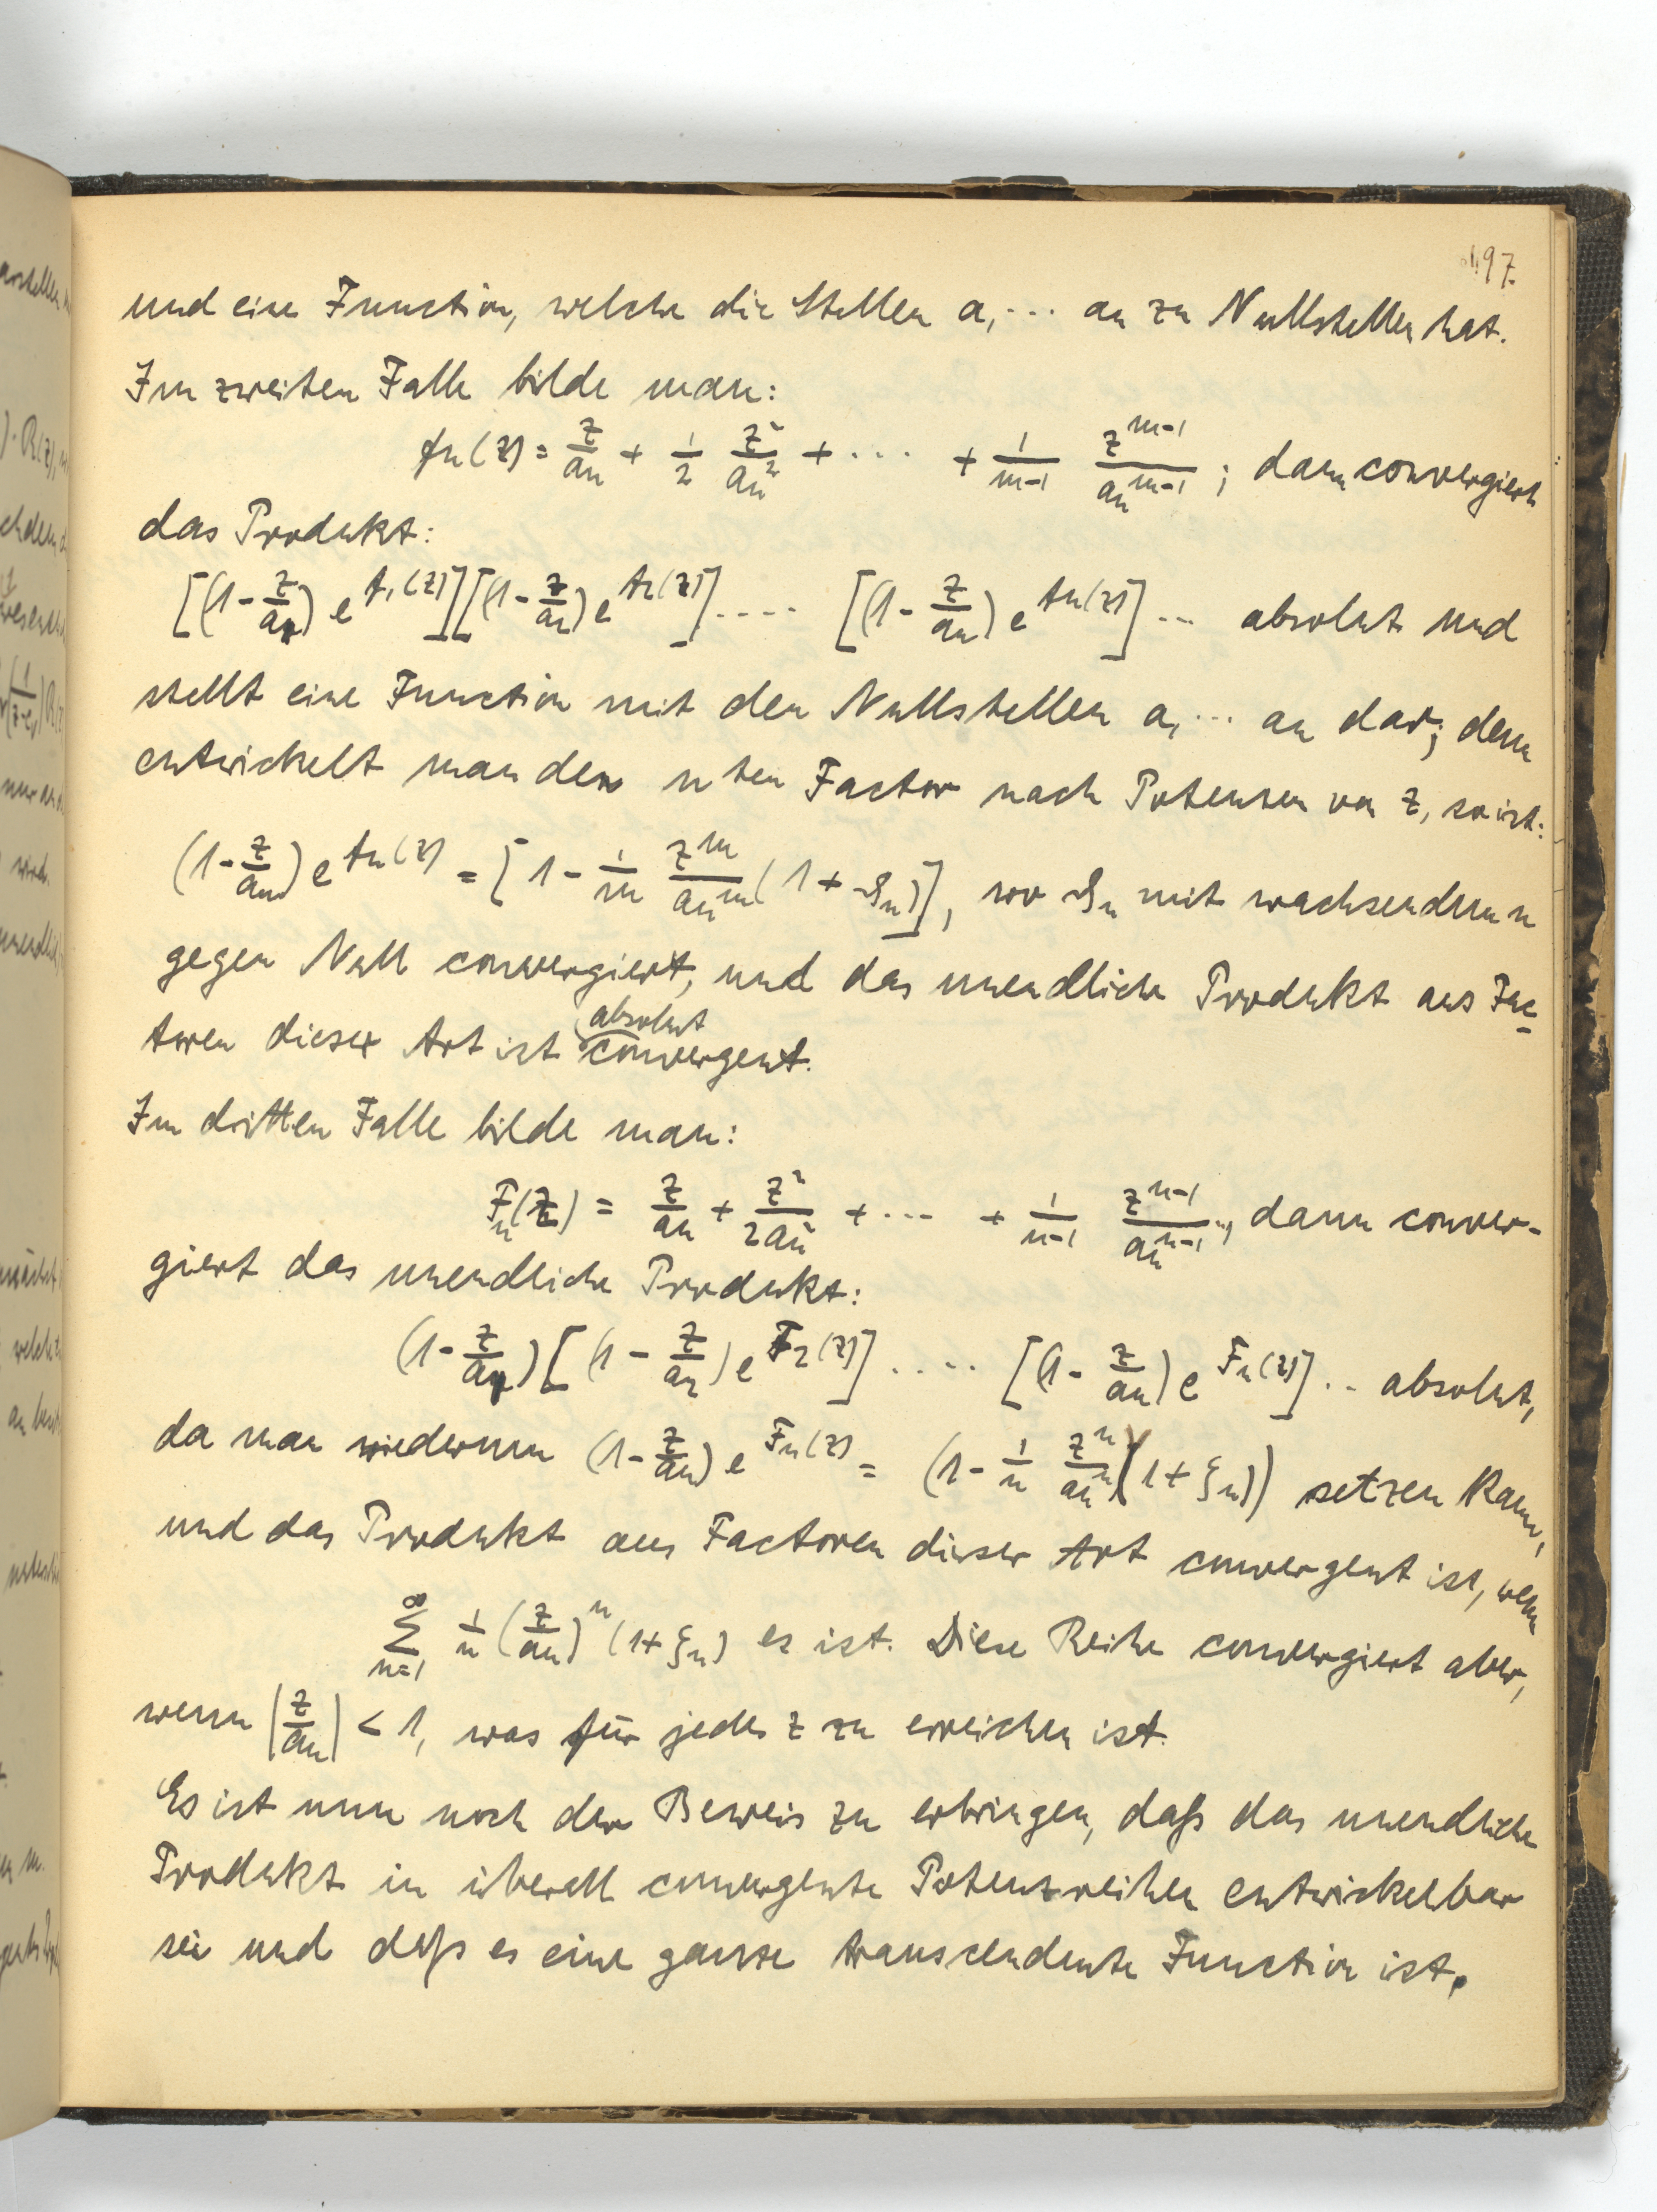 197.
und eine Function, welche die Stellen a₁ ··· aₙ zu Nullstellen hat.
Im zweiten Falle bilde man:
fₙ(z) = z/aₙ + 1/2 z²/aₙ² + ···· + 1/(m-1) z^(m-1)/aₙ^(m-1) ; dann convergiert
das Produkt:
[(1 - z/a₁) e^(f₁(z))][(1 - z/a₂) e^(f₂(z))] ···· [(1 - z/aₙ) e^(fₙ(z))] ··· absolut und
stellt eine Function mit den Nullstellen a₁ ··· aₙ dar; denn
entwickelt man den nten Factor nach Potenzen von z, so ist:
(1 - z/aₙ) e^(fₙ(z)) = [1 - 1/m z^m/aₙ^m (1 + ϑₙ)], wo ϑₙ mit wachsendem n
gegen Null convergiert, und das unendliche Produkt aus Fac-
toren dieser Art ist absolut convergent.
Im dritten Falle bilde man:
Fₙ(z) = z/aₙ + z²/2aₙ² + ··· + 1/(n-1) z^(n-1)/aₙ^(n-1), dann conver-
giert das unendliche Produkt:
(1 - z/a₁)[(1 - z/a₂) e^(F₂(z))] ····· [(1 - z/aₙ) e^(Fₙ(z))] ·· absolut,
da man wiederum (1 - z/aₙ) e^(Fₙ(z)) = (1 - 1/n z^n/aₙ^n (1 + ξₙ)) setzen kann,
und das Produkt aus Factoren dieser Art convergent ist, wenn
∑_(n=1)^∞ 1/n (z/aₙ)^n (1 + ξₙ) es ist. Diese Reihe convergiert aber,
wenn |z/aₙ| < 1, was für jedes z zu erreichen ist.
Es ist nun noch der Beweis zu erbringen, daß das unendliche
Produkt in überall convergente Potenzreihen entwickelbar
sei und daß es eine ganze transcendente Function ist.